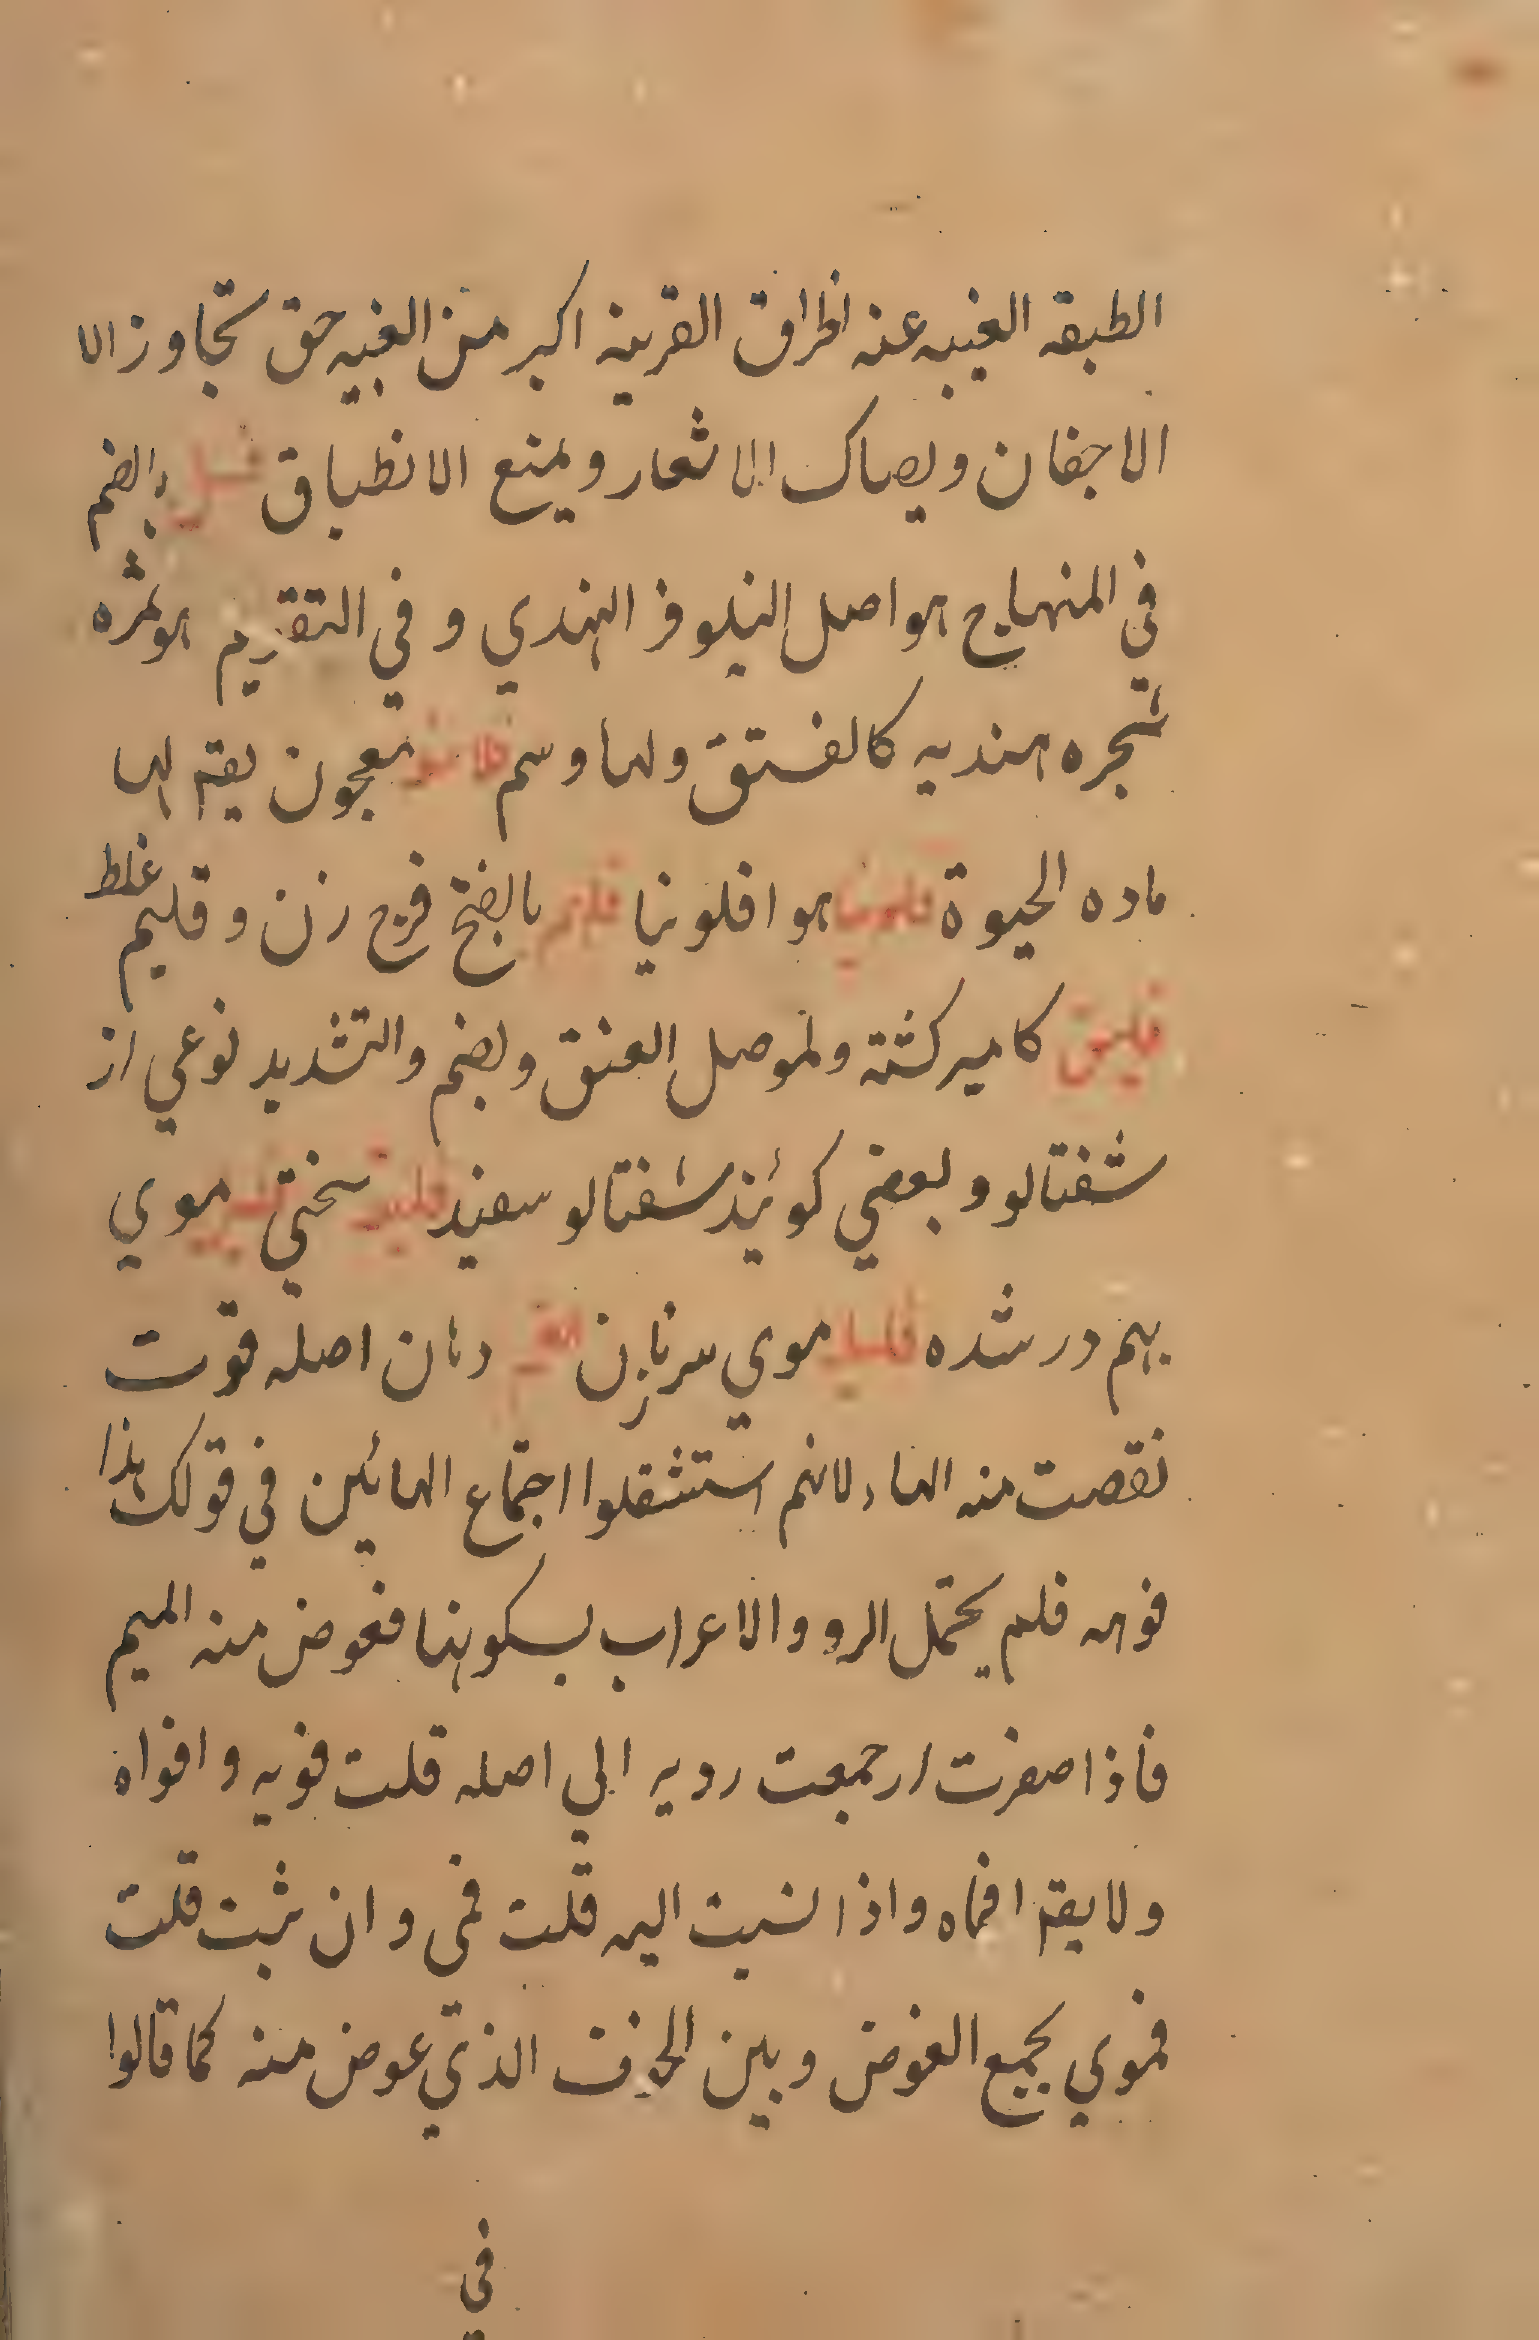 الطبقه العنبيه عنه اطراف القرينه اكبر من العنبيه حتي تجاوز الا
الاجفان ويصاك الاشعار ويمنع الانطباق فل بالضم
في المنهاج هو اصل النيلوفر الهندي و في التقويم هو ثمره
شجره هنديه كالفستق ولها وسم معجون يقم لها
ماده الحيوة فلونيا هو افلونيا فلهم بالفتح فرج زن و قليم غلط
فليق كامير كشته ولموصل العنق وبضم والتشديد نوعي از
شفتالو و بعضي كويند شفتالو سفيد سختي موي
بهم در شده فليله موي سر نازن الفم دهان اصله فوت
نقصت منه الهاء لانهم استثقلوا اجتماع الهائين في قولك هذا
فوهه فلم يحتمل الرو والاعراب بسكونها فعوض منه الميم
فاذا صغرت ارجمعت رديه الي اصله قلت فويه و افواه
ولا يقم افماه واذا نسبت اليه قلت فمى وان ثبت قلت
فموي بجمع العوض وبين الحرف الذي عوض منه كما قالوا
في